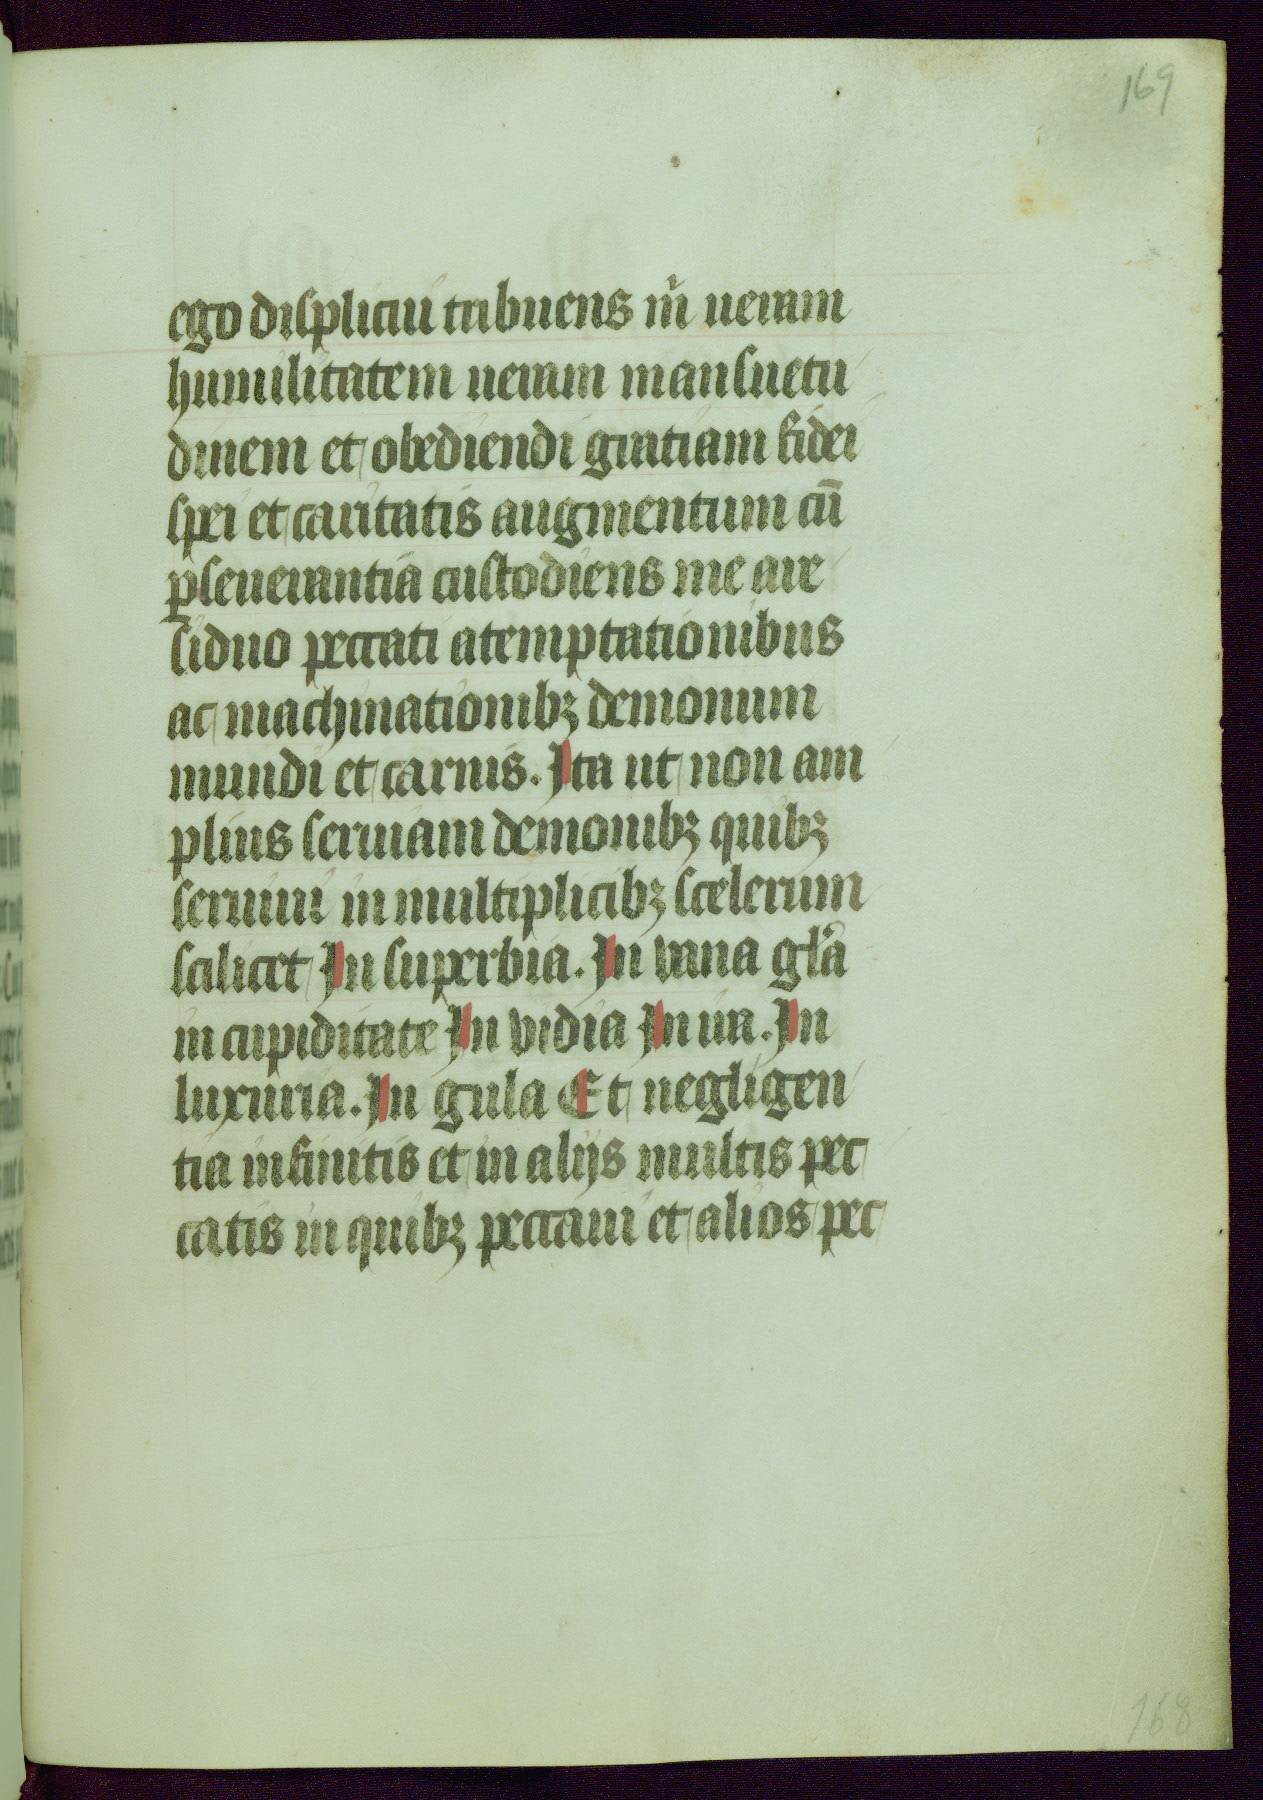 169
ego displicui tribuens m̄ ueram
humilitatem ueram mansuetu
dinem et obediendi gratiam fidei
spei et caritatis augmentum cū
ꝑseuerantia custodiens me a re
siduo peccati a temptationibus
ac machinationibꝫ demonum
mundi et carnis. Ita ut non am
plius seruiam demonibꝫ quibꝫ
seruiui in multiplicibꝫ scelerum
scilicet In superbia. In vana gl̄a
in cupiditate In vidia In ira. In
luxuria. In gula Et negligen
tia infinitis et in alijs multis pec
catis in quibꝫ peccaui et alios pec
168